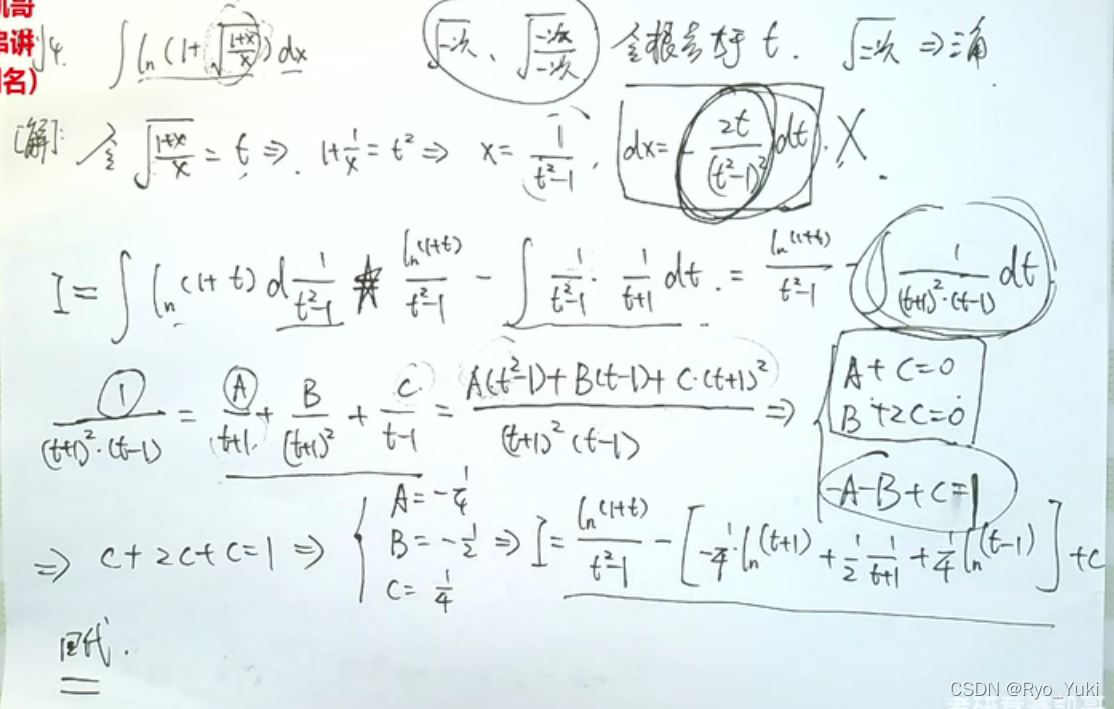 凯哥
串讲
名)
例4. ∫ ln(1+√((1+x)/x)) dx √一次、√(一次/一次) 令根号大于 t. √二次 ⇒ 三角
[解]: 令 √((1+x)/x) = t ⇒ 1+1/x = t² ⇒ x = 1/(t²-1), dx = -2t/(t²-1)² dt. X
I = ∫ ln(1+t) d 1/(t²-1) ln(1+t)/(t²-1) - ∫ 1/(t²-1) · 1/(t+1) dt. = ln(1+t)/(t²-1) - ∫ 1/((t+1)²·(t-1)) dt
1/((t+1)²·(t-1)) = A/(t+1) + B/(t+1)² + C/(t-1) = (A(t²-1)+B(t-1)+C·(t+1)²)/((t+1)²(t-1)) ⇒
A+C=0
B+2C=0
-A-B+C=1
⇒ C+2C+C=1 ⇒ { A=-1/4 B=-1/2 C=1/4 ⇒ I = ln(1+t)/(t²-1) - [-1/4·ln(t+1) + 1/2 1/(t+1) + 1/4 ln(t-1)] + C
回代.
CSDN @Ryo_Yuki